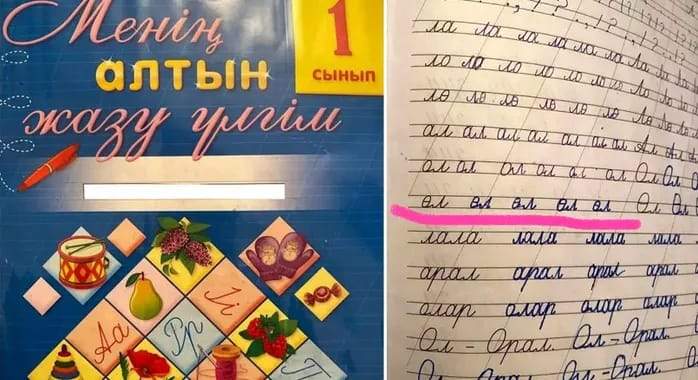 Менің
алтын
жазу үлгім
1
сынып
Іі
Аа
Рр
ла ла ла ла ла ла Ла Ла
ло ло ло ло ло ло Ло Ло
лө лө лө лө лө лө Лө Лө
ал ал ал ал ал ал ал Ал Ал
ол ол ол ол ол ол Ол Ол
өл өл өл өл өл Өл Өл
лала лала лала лала
арал арал арал арал
олар олар олар олар
Ол - Орал. Ол - Орал.
Ол - Орал. Ол - Орал.